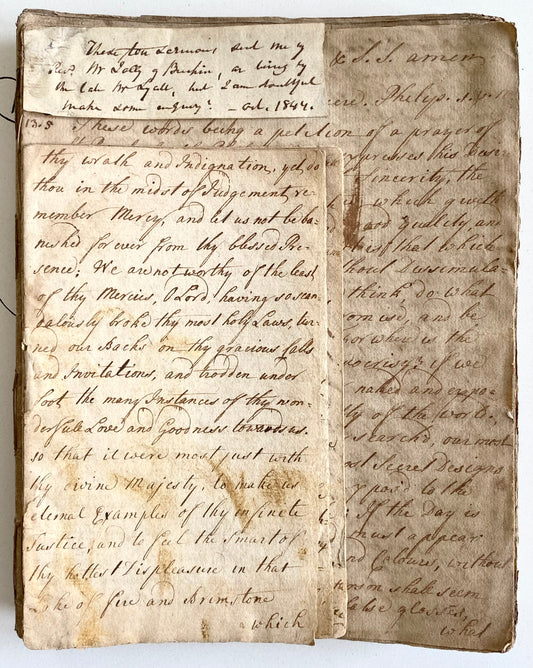 These ten sermons sent me by
Revd. Mr Jolly of          , as being by
the late Mr         , but I am doubtful
make some enquiry? — Oct. 1844.
& S. S. amen
                   Philip. 1. 
13.5 These words being a petition of a prayer of
expresses his Desi-
sincerity, the
which giveth
and Quality, and
is that which
without Dissimula-
think do what
promise, and be
For when is the
hypocrisy? if we
naked and expo-
of the world.
search'd, our most
most Secret Designs
to the
If the Day is
must appear
and Colours, without
shall seem
false glosses,
what
thy wrath and Indignation, yet do
thou in the midst of Judgement re-
member Mercy, and let us not be ba-
nished for ever from thy blessed Pre-
sence; We are not worthy of the least
of thy Mercies, O Lord, having so scan-
dalously broke thy most holy Laws, tur-
ned our Backs on thy gracious calls
and Invitations, and trodden under
foot the many Instances of thy won-
derfule Love and Goodness towards us.
so that it were most just with
thy divine Majesty, to make us
eternal Examples of thy infinite
Justice, and to feel the Smart of
thy hottest Displeasure in that
Lake of fire and Brimstone
which